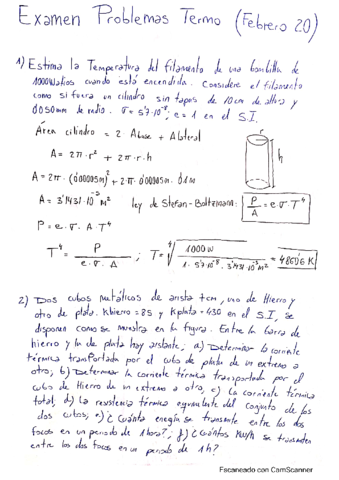 Examen Problemas Termo (Febrero 20)
1) Estima la Temperatura del filamento de una bombilla de
1000Watios cuando está encendida. Considere el filamento
como si fuera un cilindro sin tapas de 10cm de altura y
0'050mm de radio. σ = 5'7·10⁻⁸, e = 1 en el S.I.
Área cilindro = 2 Abase + Alateral
A = 2π·r² + 2π·r·h
r
h
A = 2π·(0'00005m)² + 2π·0'00005m·0'1m
A = 3'1431·10⁻⁵ m²
ley de Stefan-Boltzmann: P/A = e·σ·T⁴
P = e·σ·A·T⁴
T⁴ = P/(e·σ·A) ; T = ⁴√(1000W/(1·5'7·10⁻⁸·3'1431·10⁻⁵ m²)) = 4860'6 K
2) Dos cubos metálicos de arista 4cm, uno de Hierro y
otro de plata. Khierro = 85 y Kplata = 430 en el S.I, se
disponen como se muestra en la figura. Entre la barra de
hierro y la de plata hay aislante; a) Determinar la corriente
térmica transportada por el cubo de plata de un extremo a
otro; b) Determinar la corriente térmica transportada por el
cubo de Hierro de un extremo a otro, c) La corriente térmica
total, d) La resistencia térmica equivalente del conjunto de los
dos cubos; e) ¿Cuánta energía se transmite entre los dos
focos en un periodo de 1 hora?; f) ¿Cuántos kW/h se transmiten
entre los dos focos en un periodo de 1h?
Escaneado con CamScanner